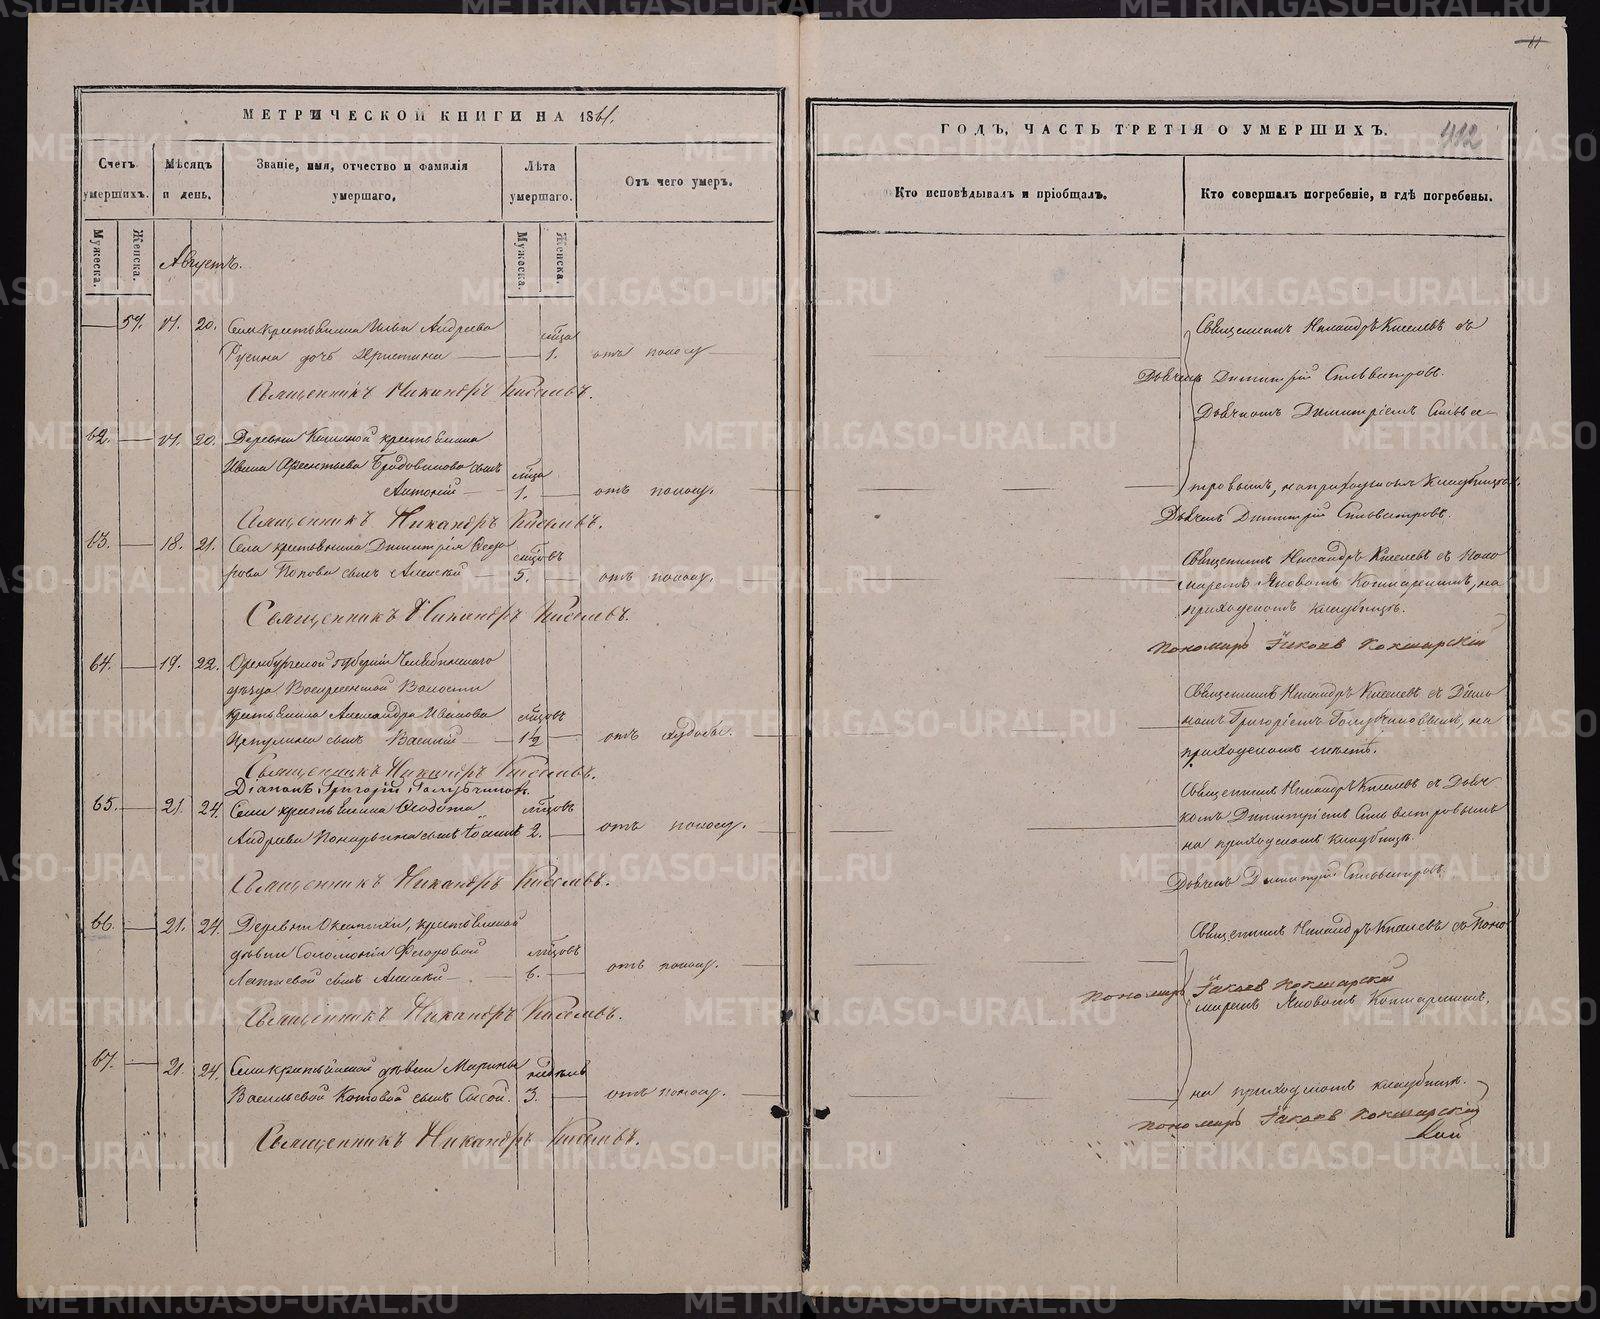 МЕТРИЧЕСКОЙ КНИГИ НА 1861.
Счетъ умершихъ.
Мѣсяцъ и день.
Званіе, имя, отчество и фамилія умершаго.
Лѣта умершаго.
Отъ чего умеръ.
Мужеска.
Женска.
Мужеска.
Женска.
Августъ.
59. 17. 20. Села крестьянина Ильи Андреева
Русина дочь Христина 1. отъ поносу
Священникъ Никандръ Киселевъ.
62. 17. 20. Деревни крестьянина
Ивана сынъ
Антоній 1. отъ поносу.
Священникъ Никандръ Киселевъ.
63. 18. 21. Села крестьянина Димитрія Ѳеодо
рова Попова сынъ Алексій мѣсцовъ 5. отъ поносу.
Священникъ Никандръ Киселевъ.
64. 19. 22. Оренбургской губерніи Челябинскаго
уѣзда Воскресенской Волости
крестьянина Александра Иванова
сынъ Василій мѣсцовъ 1½ отъ худобы.
Священникъ Никандръ Киселевъ.
Діаконъ Григорій Голубчиковъ.
65. 21. 24. Села крестьянина Ѳеодота
Андреева сынъ Іоаннъ мѣсцовъ 2. отъ поносу.
Священникъ Никандръ Киселевъ.
66. 21. 24. Деревни крестьянской
дѣвки Соломоніи Ѳедоровой
Лаптевой сынъ Алексій мѣсцовъ 6. отъ поносу.
Священникъ Никандръ Киселевъ.
67. 21. 24. Села крестьянской дѣвки Марины
Васильевой Котовой сынъ Сысой. недѣль 3. отъ поносу.
Священникъ Никандръ Киселевъ.
61
412
ГОДЪ, ЧАСТЬ ТРЕТІЯ О УМЕРШИХЪ.
Кто исповѣдывалъ и пріобщалъ.
Кто совершалъ погребеніе, и гдѣ погребены.
Священникъ Никандръ Киселевъ съ
Дьячекъ Димитрій Сильвестровъ.
Дьячкомъ Димитріемъ Сильве
тровымъ, на приходскомъ кладбищѣ.
Дьячекъ Димитрій Сильвестровъ.
Священникъ Никандръ Киселевъ съ Поно
маремъ Яковомъ Кокшарскимъ, на
приходскомъ кладбищѣ.
Пономарь Іаковъ Кокшарскій
Священникъ Никандръ Киселевъ съ Діако
номъ Григоріемъ Голубчиковымъ, на
приходскомъ
Священникъ Никандръ Киселевъ съ Дьяч
комъ Димитріемъ Сильвестровымъ
на приходскомъ кладбищѣ.
Дьячекъ Димитрій Сильвестровъ
Священникъ Никандръ Киселевъ съ Поно
Пономарь Іаковъ Кокшарскій
маремъ Яковомъ Кокшарскимъ,
на приходскомъ кладбищѣ.
Пономарь Іаковъ Кокшарскій
METRIKI.GASO-URAL.RU